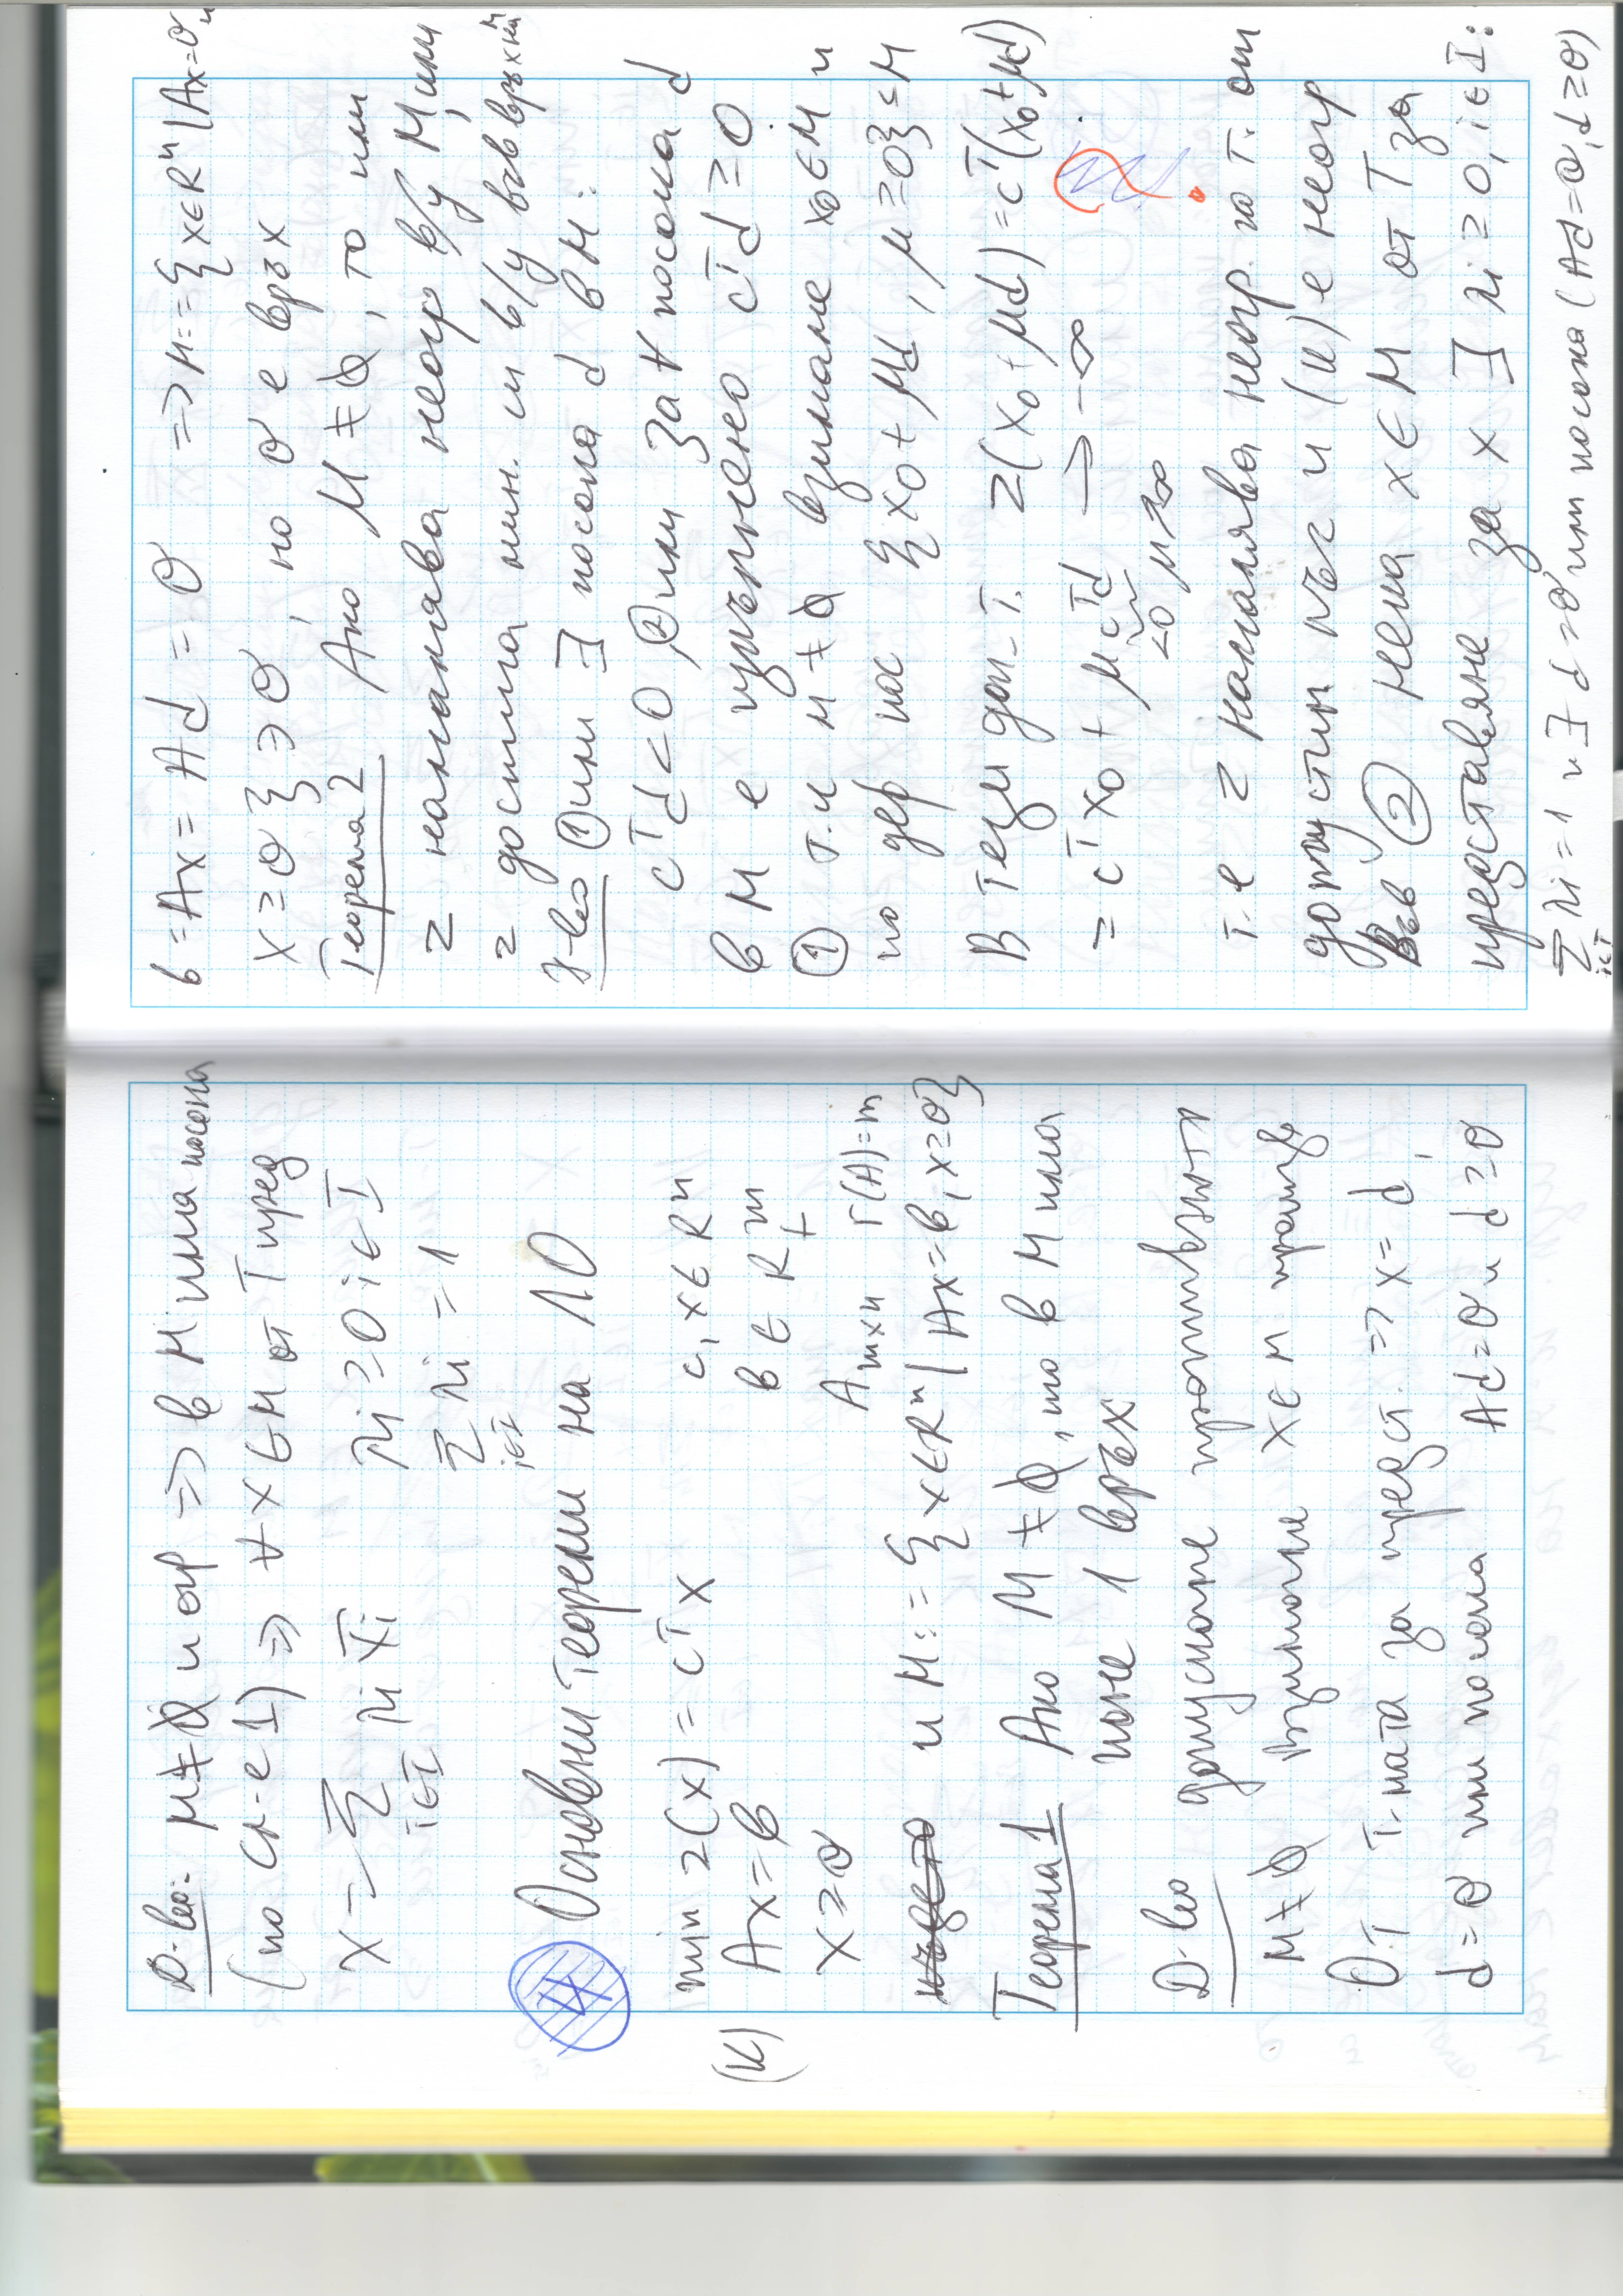 Д-во: M≠∅ и огр => в M няма посока
(по сл-е 1) => ∀ x ∈ M от T пред
x = ∑ λi x̄i λi ≥ 0 i ∈ I
i∈I ∑ λi = 1
i∈I
IX Основни теореми на ЛО
min z(x) = cᵀx c, x ∈ Rⁿ
(K) Ax = b b ∈ R₊ᵐ
x ≥ 0 Aₘₓₙ r(A)=m
и M := { x∈Rⁿ | Ax = b, x ≥ 0}
Теорема 1 Ако M ≠ ∅, то в M има
поне 1 връх
Д-во допускаме противното
M≠∅ взимаме x∈M
От T-мата за предст. => x = d,
d = 0 или посока Ad = 0 и d ≥ 0
b = Ax = Ad = 0 => M := { x∈Rⁿ | Ax = 0 и
x ≥ 0 } ∋ 0, но 0 е връх
Теорема 2 Ако M ≠ ∅, то или
z намалява неогр в/у M, или
z достига мин. м в/у във връх на M
Д-во ① или ∃ посока d в M:
cᵀd < 0, ② или за ∀ посока d
в M е изпълнено cᵀd ≥ 0
① т.к M ≠ ∅ взимаме x₀∈M и
по деф пос { x₀ + μd, μ ≥ 0} ⊂ M
В тези доп. т. z(x₀ + μd) = cᵀ(x₀ + μd)
= cᵀx₀ + μcᵀd → -∞
<0 μ→∞
т.е z намалява неогр. по т. от
допустим лъч и (K) е неогр
Във ② нека x ∈ M от T за
представяне за x ∃ λi ≥ 0, i∈I:
∑ λi = 1 и ∃ d = 0 или посока (Ad = 0, d ≥ 0)
i∈I